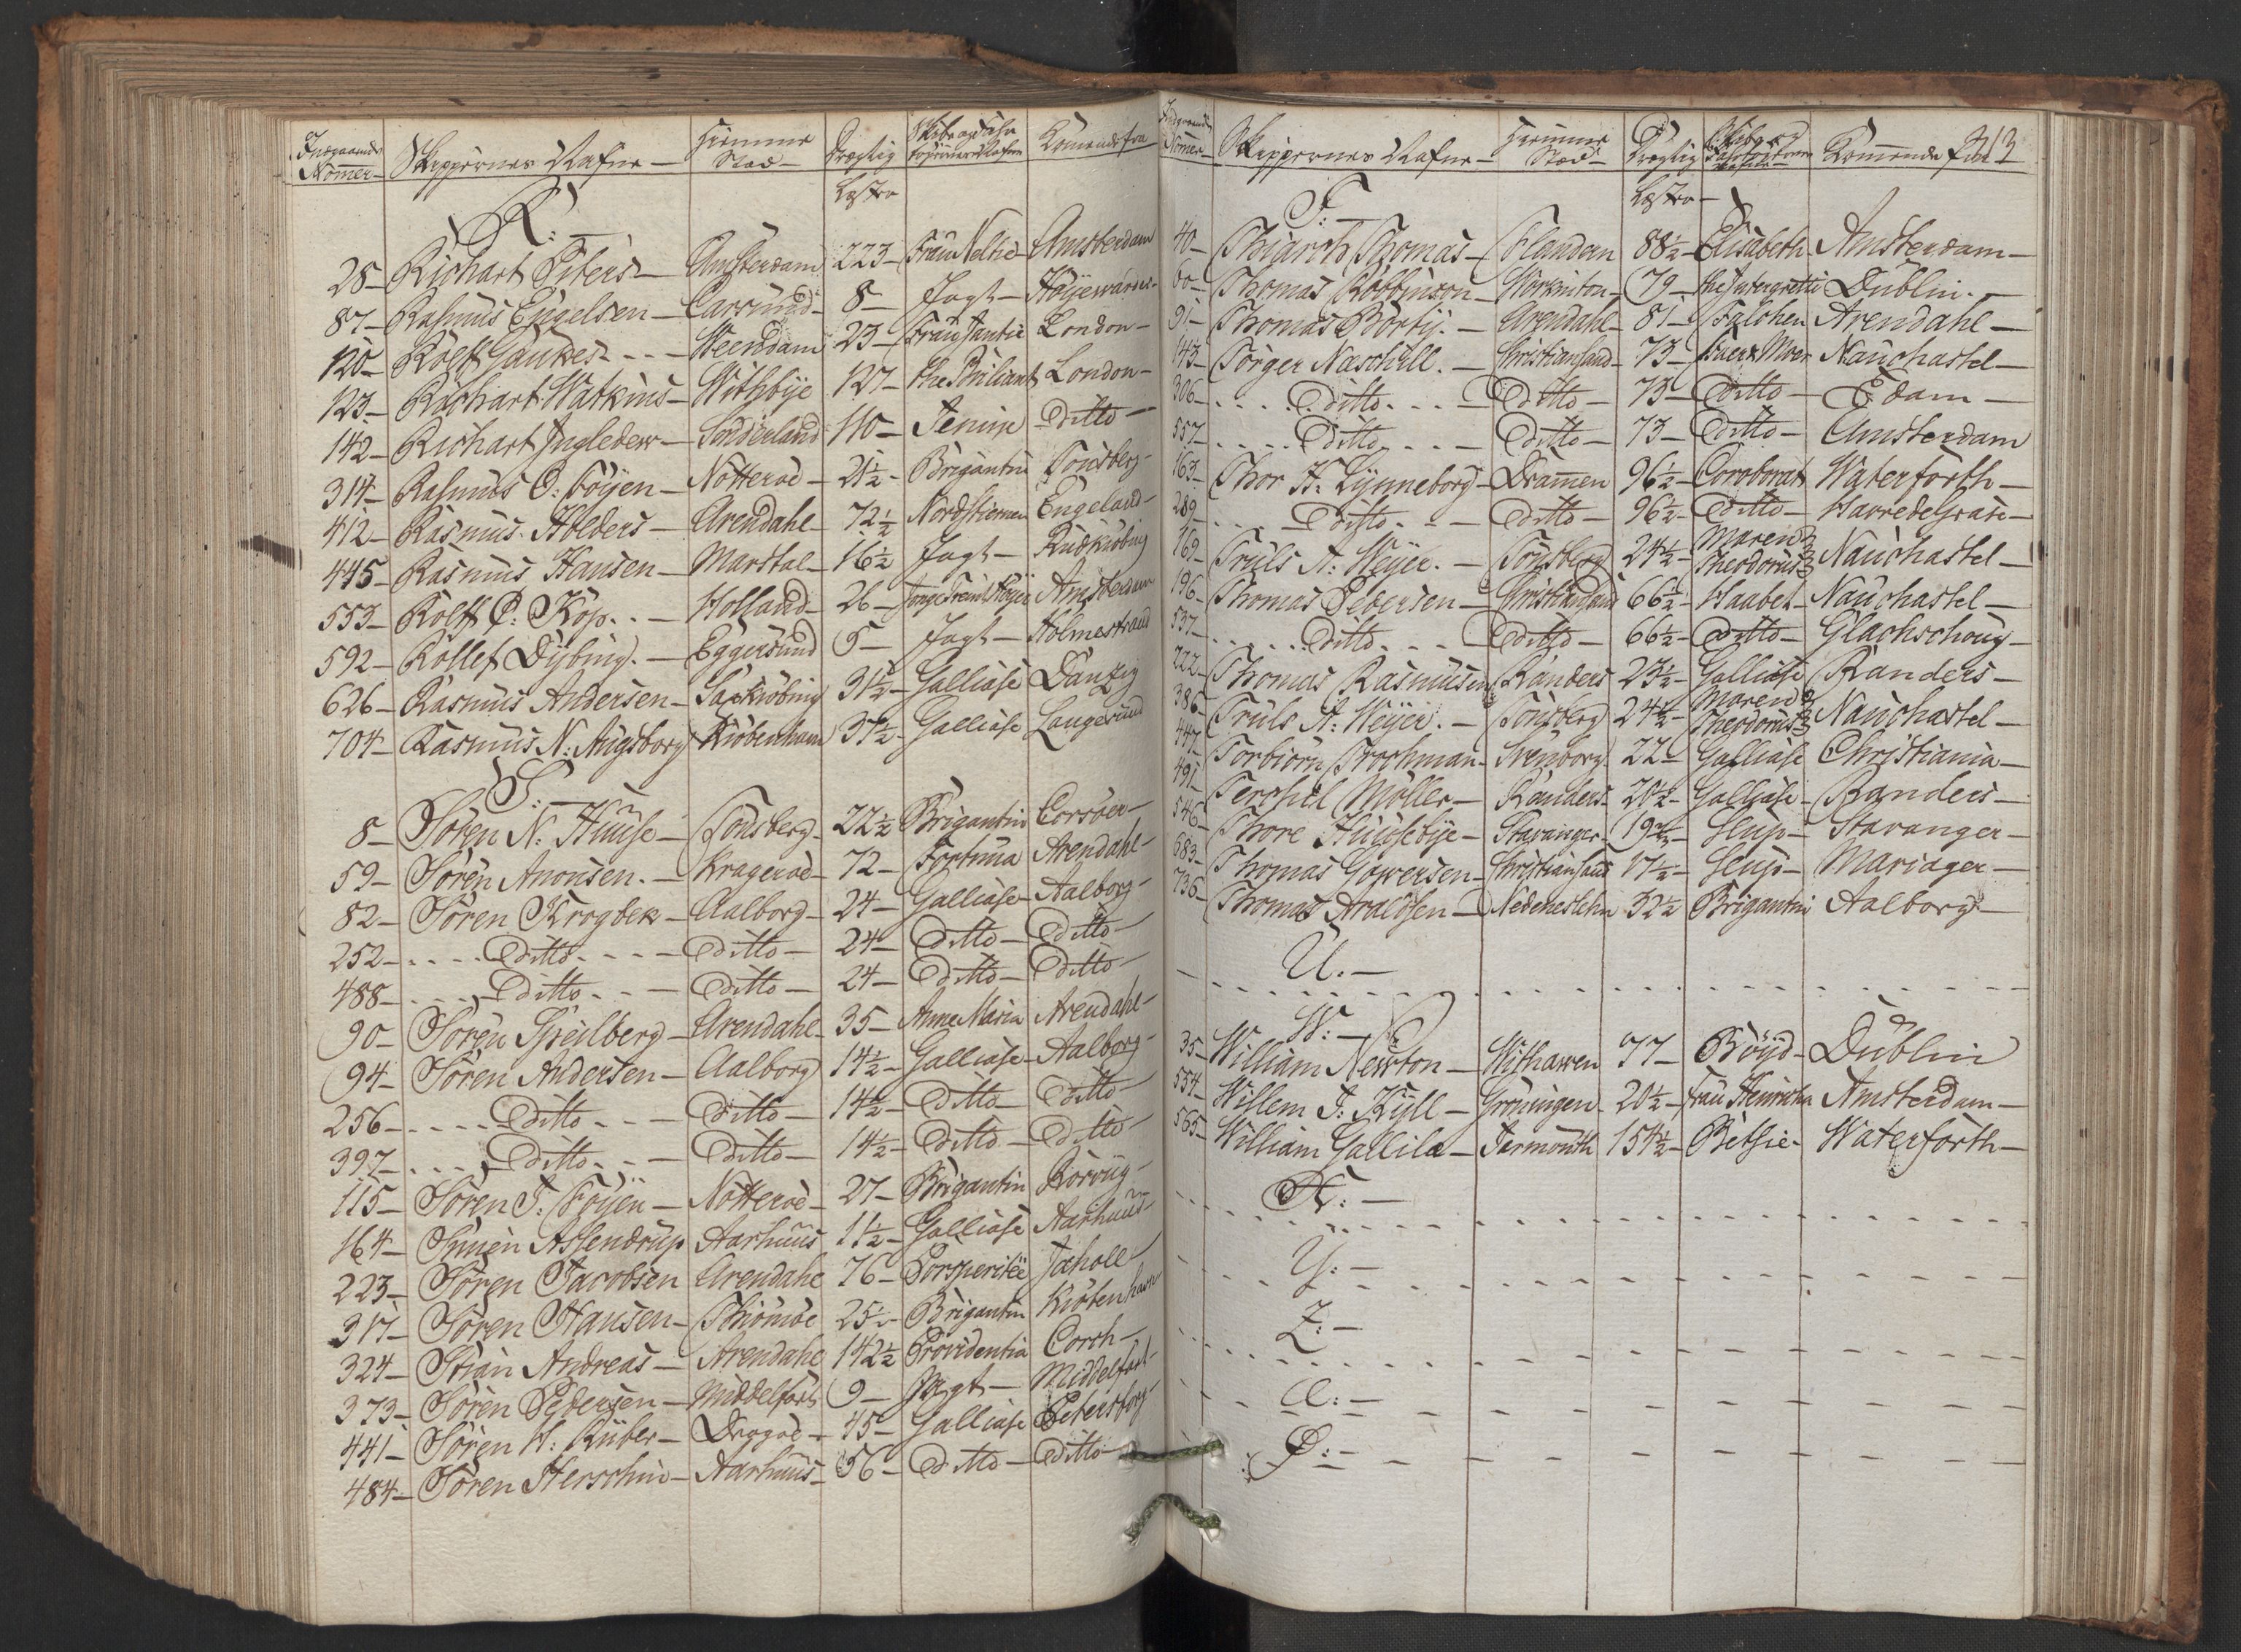 Indgaaende Nommer Skippernes Nafne Hiemme Stæd Drægtig Skibe og Fahrtøyernes Nafne Komende fra
Læster
R:
28 Richart Piters Amsterdam 223 Frau Neltie Amsterdam
87 Rasmus Engelsen Carsund 8 Jagt Höyewarder
120 Roelf Gaukes Weendam 23 Frau Jantie London
123 Richart Watkins Withbye 127 the Briliant London
142 Richart Ingledew Sonderland 110 Fenix Ditto
314 Rasmus O: Föyen Nötteröe 21½ Brigantin Tonsberg
412 Rasmus Holders Arendahl 72½ Nordstiernen Engeland
445 Rasmus Hansen Marstal 16½ Jagt Rudkiöbing
553 Rolff P: Kop Holland 26 Amsterdam
592 Rollef Dybing Eggersund 5 Jagt Holmestrand
626 Rasmus Andersen Saxkiöbing 31½ Galliase Danzig
704 Rasmus N: Augsborg Kiöbenhavn 37½ Galliase Langesund
S:
8 Sören N: Huuse Tonsberg 22½ Brigantin Corsöer
59 Sören Anonsen Krageröe 72 Fortuna Arendahl
82 Sören Krogbek Aalborg 24 Galliase Aalborg
252 Ditto Ditto 24 Ditto Ditto
488 Ditto Ditto 24 Ditto Ditto
90 Sören Speilberg Arendahl 35 Anne Maria Arendahl
94 Sören Andersen Aalborg 14½ Galliase Aalborg
256 Ditto Ditto 14½ Ditto Ditto
397 Ditto Ditto 14½ Ditto Ditto
115 Sören J: Föyen Nötteröe 27 Brigantin Rörvig
164 Simen Aslendrup Aarhuus 11½ Galliase Aarhuus
223 Sören Jacobsen Arendahl 76 Porsperitee Joholl
317 Sören Hansen Thiömöe 25½ Brigantin Kiöbenhavn
324 Stian Andreas Arendahl 142½ Providentia Corch
373 Sören Pedersen Middelfart 9 Jagt Middelfart
441 Sören H: Rüber Dragöe 45 Galliase Petersborg
484 Sören Herschin Aarhuus 56 Ditto Ditto
Indgaaende Nommer Skippernes Nafne Hiemme Stæd Drægtig Skibe og Fahrtøyernes Nafne Komende fra 213
Læster
T:
40 Thiarich Thomas Flandern 88½ Elisabeth Amsterdam
60 Thomas Robbinson Workinton 79 the Intergretie Dublin
91 Thomas Börty Arendahl 81 Falchen Arendahl
143 Törger Naschill Christiansand 73 Nauchastel
306 Ditto Ditto 73 Ditto Edam
557 Ditto Ditto 73 Ditto Amsterdam
163 Thor H: Lynneborg Dramen 96½ Coroborat Waterforth
289 Ditto Ditto 96½ Ditto Havredegrase
169 Truls A: Weyer Tonsberg 24½ Maren Theodorus Nauchastel
196 Thomas Pedersen Christiansand 66½ Haabet Nauchastel
537 Ditto Ditto 66½ Ditto Glachschouy
222 Thomas Rasmusen Randers 23½ Galliase Randers
386 Truls A: Weyer Tonsberg 24½ Maren Theodorus Nauchastel
447 Torbiörn Trochman Svenborg 22 Galliase Christiania
491 Terchel Möller Randers 20½ Galliase Randers
546 Thore Huusebye Stavanger 19½ Slup Stavanger
683 Thomas Gowersen Christiansand 17½ Slup Mariager
736 Thomas Araldsen Nedeneslehn 32½ Brigantin Aalborg
U:
W:
35 William Newton Withawen 77 Böyd Dublin
554 Willem J: Kyll Gröningen 20½ Frau Henricha Amsterdam
565 William Gallila Jarmouth 154½ Betsie Waterforth
X:
Y:
Z:
Æ:
Ø: